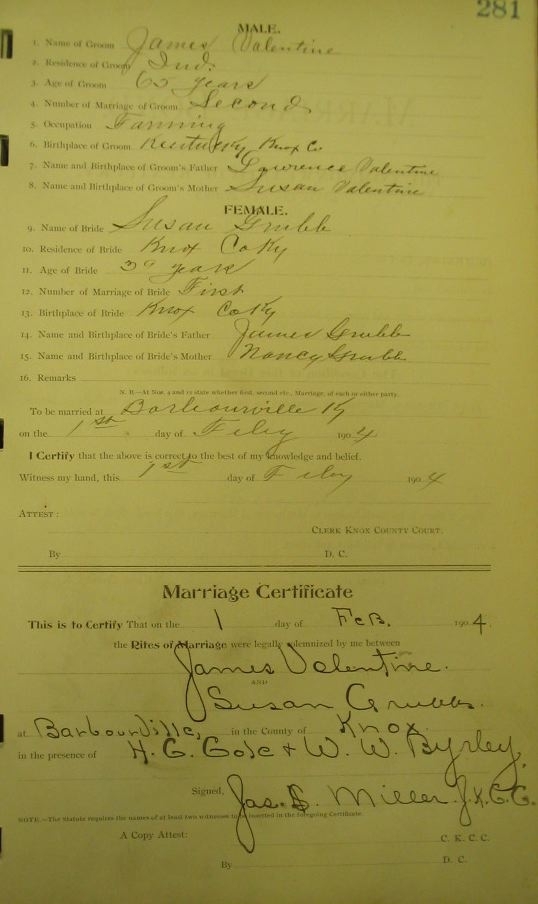 281
MALE.
1. Name of Groom James Valentine
2. Residence of Groom Ind.
3. Age of Groom 65 years
4. Number of Marriage of Groom Second
5. Occupation Farming
6. Birthplace of Groom Kentucky Knox Co.
7. Name and Birthplace of Groom's Father Lawrence Valentine
8. Name and Birthplace of Groom's Mother Susan Valentine
FEMALE.
9. Name of Bride Susan Grubb
10. Residence of Bride Knox Co Ky
11. Age of Bride years
12. Number of Marriage of Bride First
13. Birthplace of Bride Knox Co Ky
14. Name and Birthplace of Bride's Father James Grubb
15. Name and Birthplace of Bride's Mother Nancy Grubb
16. Remarks
N. B.—At Nos. 4 and 12 state whether first, second etc., Marriage, of each or either party.
To be married at Barbourville Ky
on the 1st day of Feby 1904
I Certify that the above is correct to the best of my knowledge and belief.
Witness my hand, this 1st day of Feby 1904
ATTEST:
CLERK KNOX COUNTY COURT.
By D. C.
Marriage Certificate
This is to Certify That on the 1 day of Feb. 1904.
the Rites of Marriage were legally solemnized by me between
James Valentine.
AND
Susan Grubb.
at Barbourville, in the County of Knox
in the presence of H. C. Cole & W. W. Byrley,
Signed, Jas. S. Miller J.K.C.C.
NOTE.—The Statute requires the names of at least two witnesses to be inserted in the foregoing Certificate.
A Copy Attest: C. K. C. C.
By D. C.